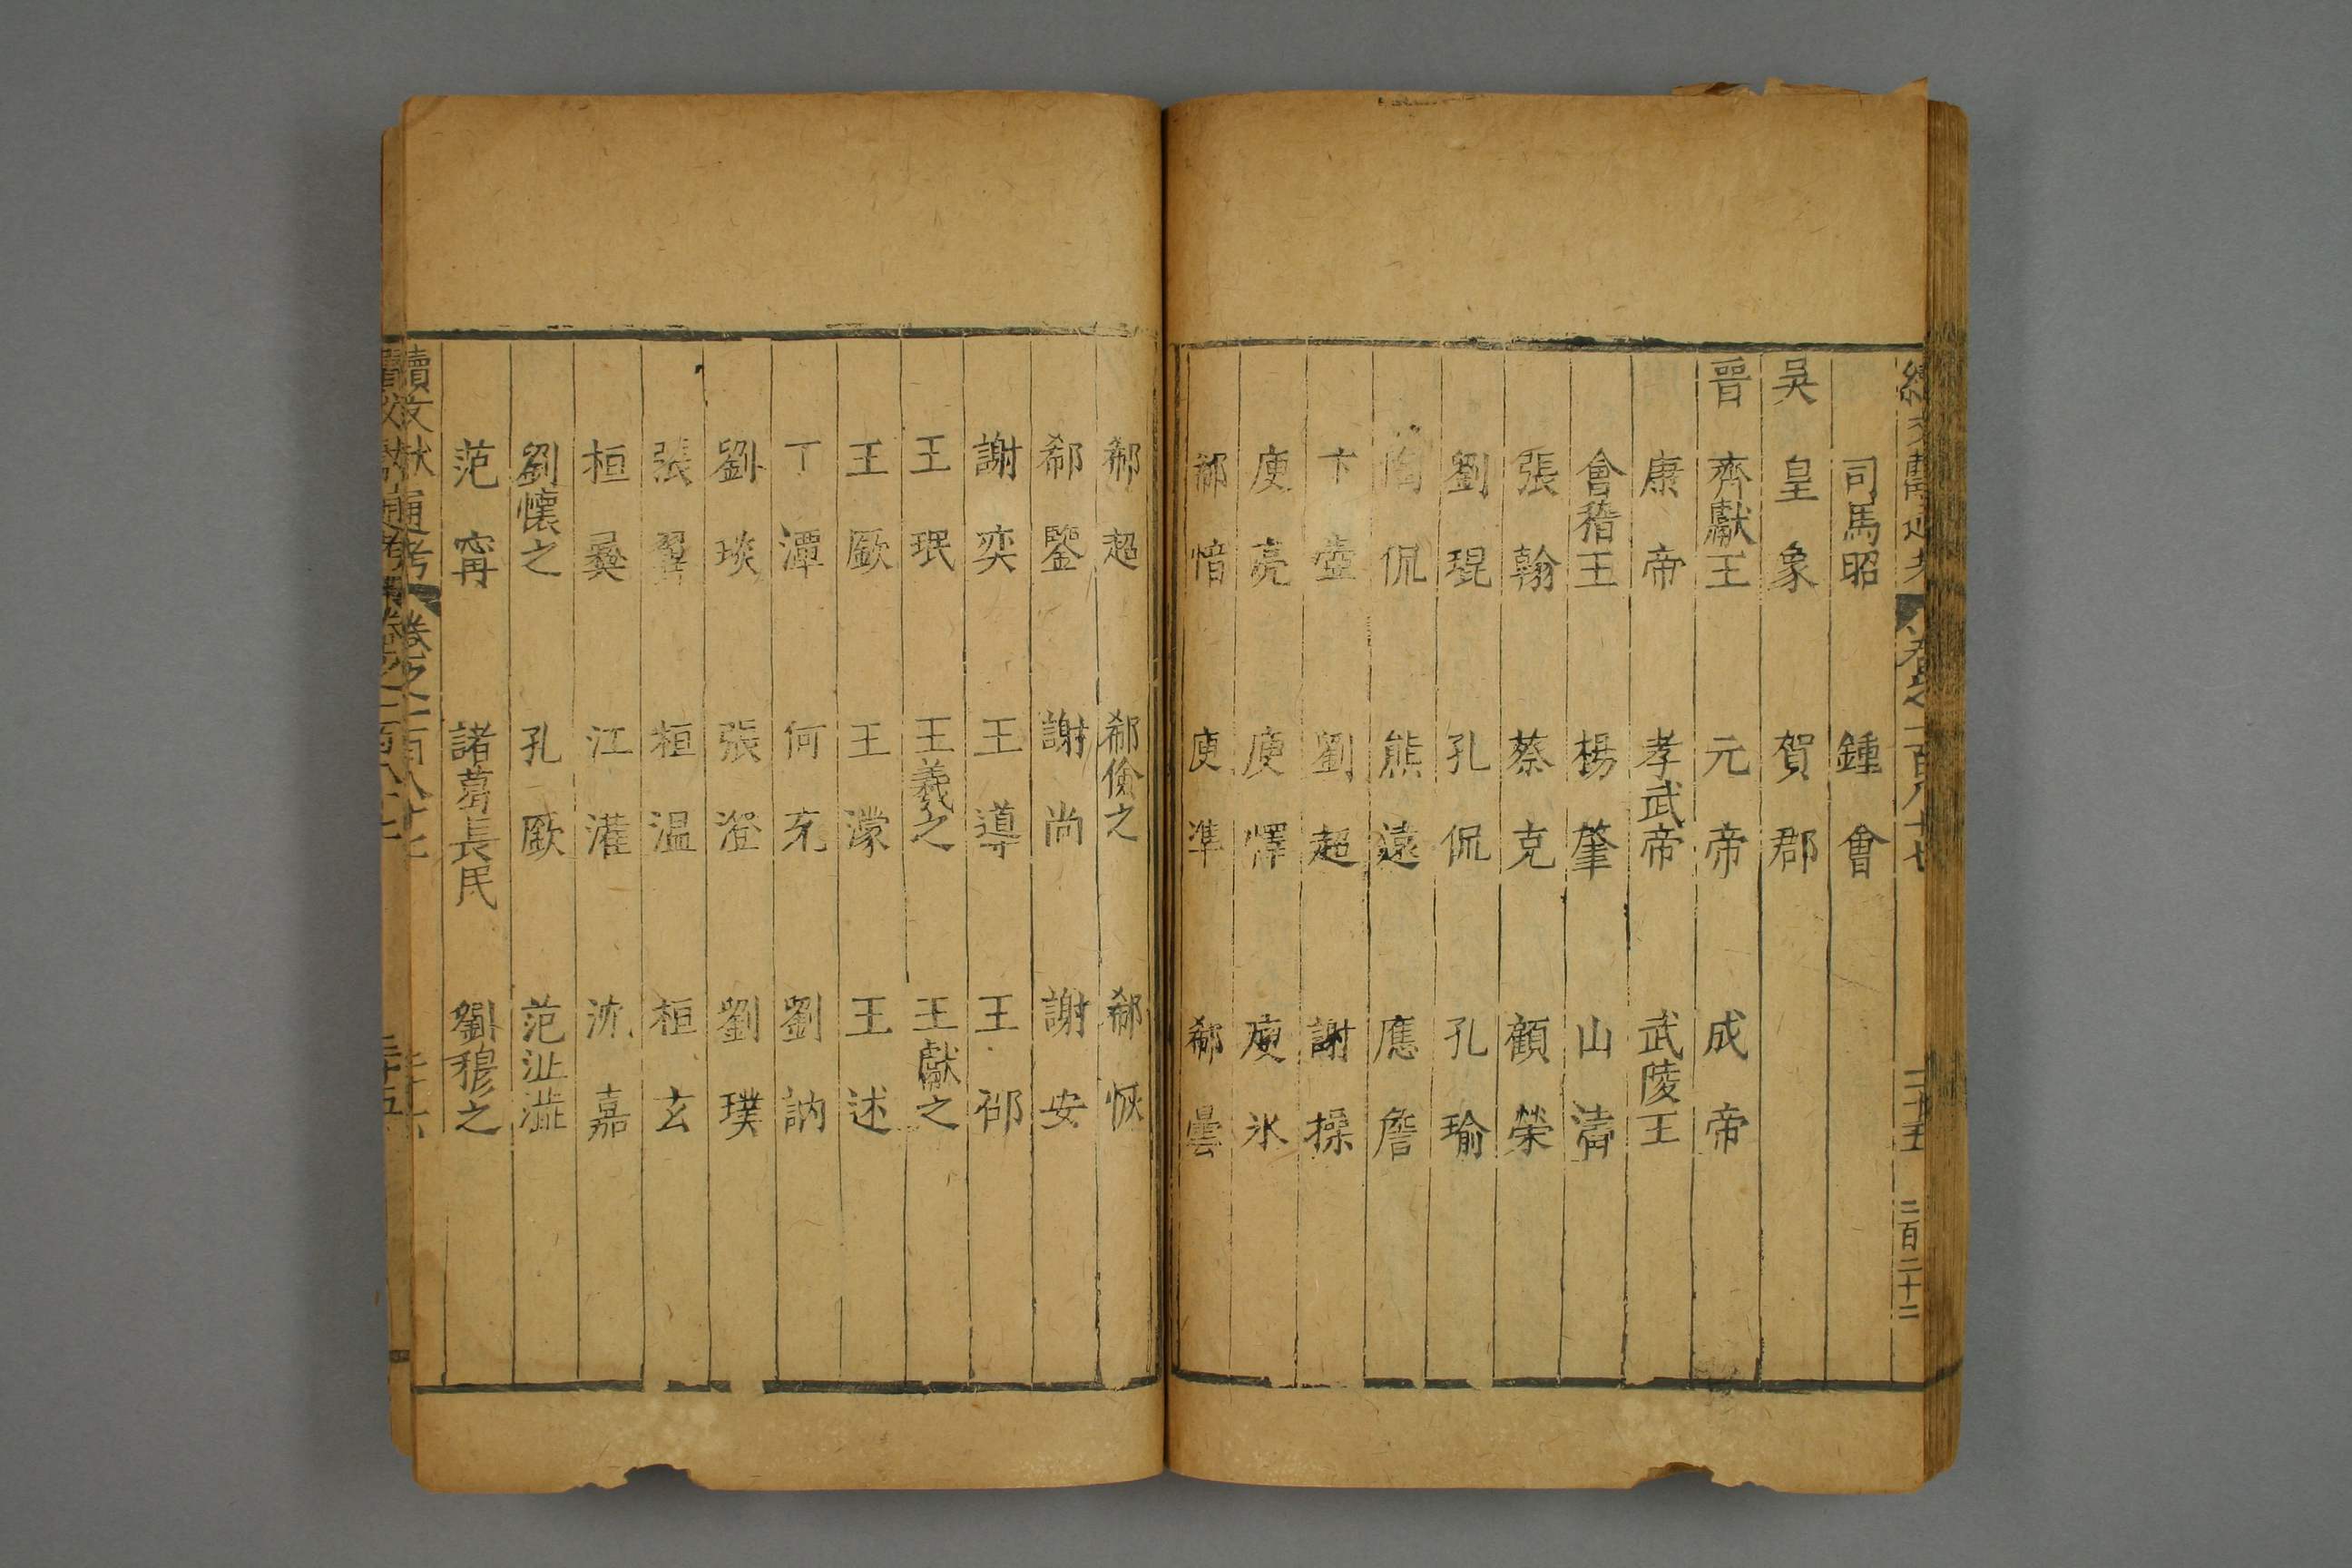 續文獻通考 卷之一百八十七 二十五 三百二十二
司馬昭 鍾會
吳 皇象 賀郡
晉 齊獻王 元帝 成帝
康帝 孝武帝 武陵王
會稽王 楊肇 山濤
張翰 蔡克 顧榮
劉琨 孔侃 孔瑜
陶侃 熊遠 應詹
卞壼 劉超 謝操
庾亮 庾懌 庾氷
郗愔 庾準 郗曇
郗超 郗儉之 郗恢
郗鑒 謝尚 謝安
謝奕 王導 王邵
王珉 王羲之 王獻之
王廞 王濛 王述
丁潭 何充 劉訥
劉琰 張澄 劉璞
張翼 桓溫 桓玄
桓彞 江灌 沈嘉
劉懷之 孔廞 范泚
范甯 諸葛長民 劉穆之
續文獻通考 卷之一百八十七